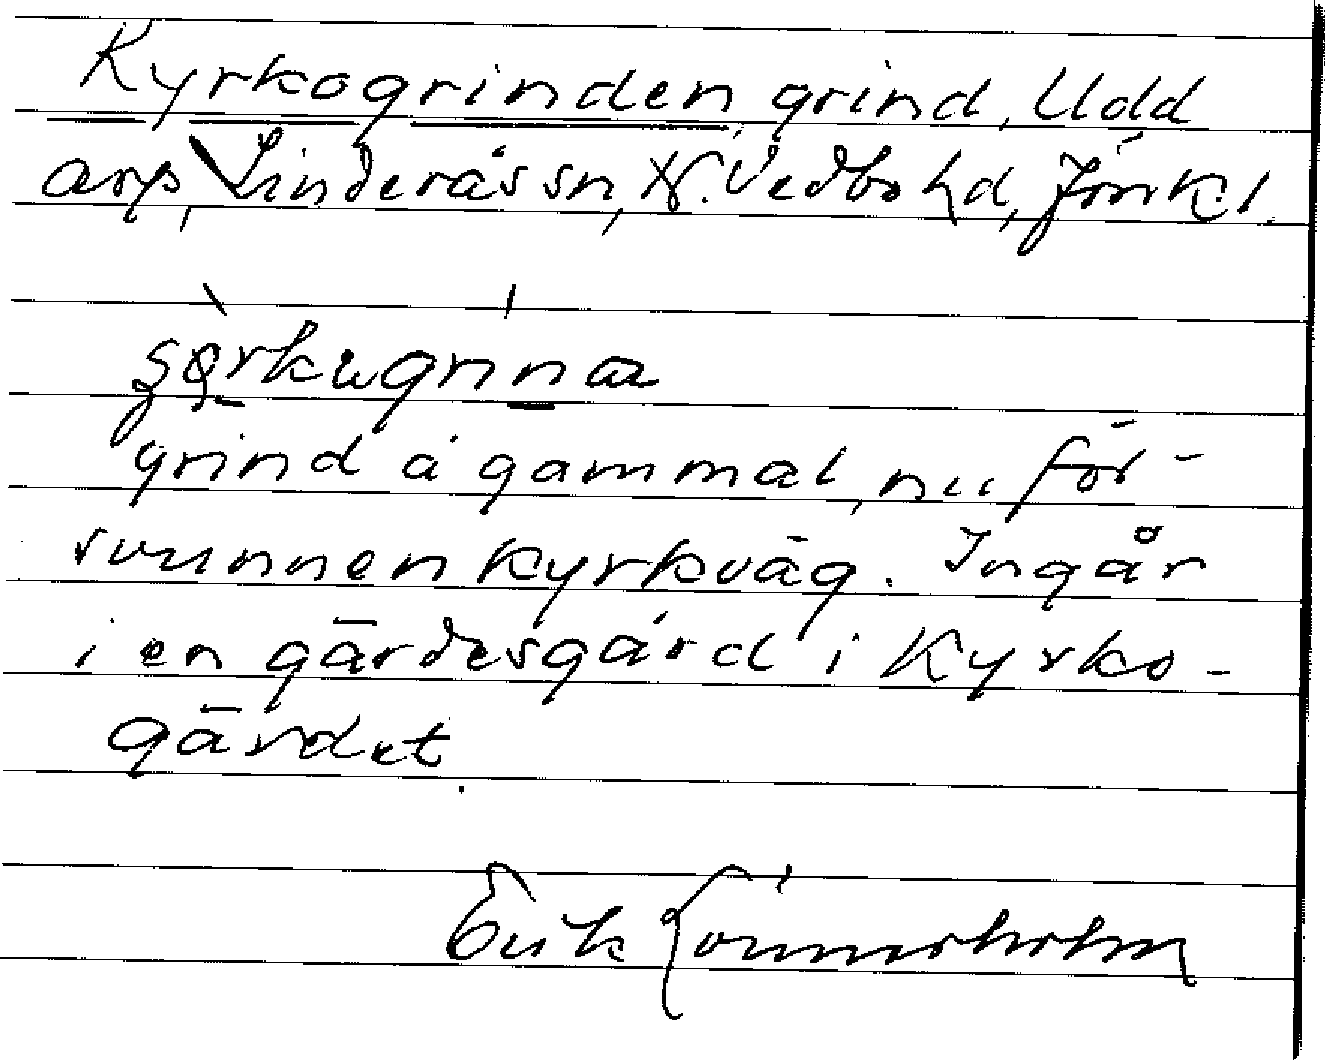 Kyrkogrinden, grind, Udd
arp, Linderås sn, N. Vedbo hd, Jönk. l.
grind å gammal, nu för-
svunnen kyrkväg. Ingår
i en gärdesgård i Kyrko-
gärdet.
Erik